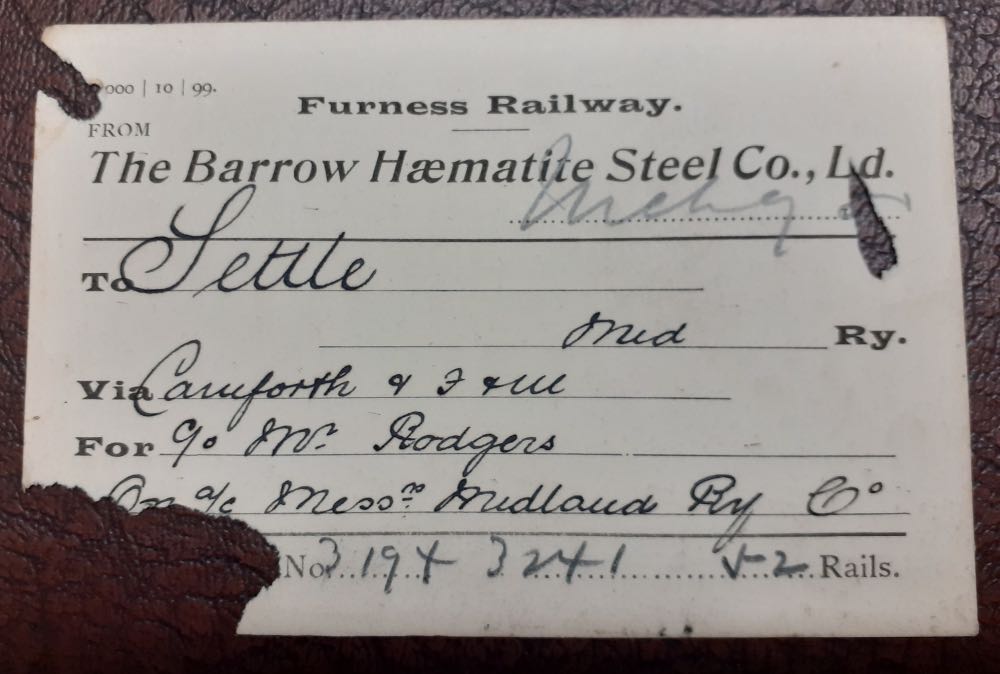 000 | 10 | 99.
Furness Railway.
FROM
The Barrow Hæmatite Steel Co., Ld.
To Settle
Mid Ry.
Via Carnforth & F & M
For c/o Mr Rodgers
On a/c Messrs Midland Ry Co
No 3194 3241 52 Rails.